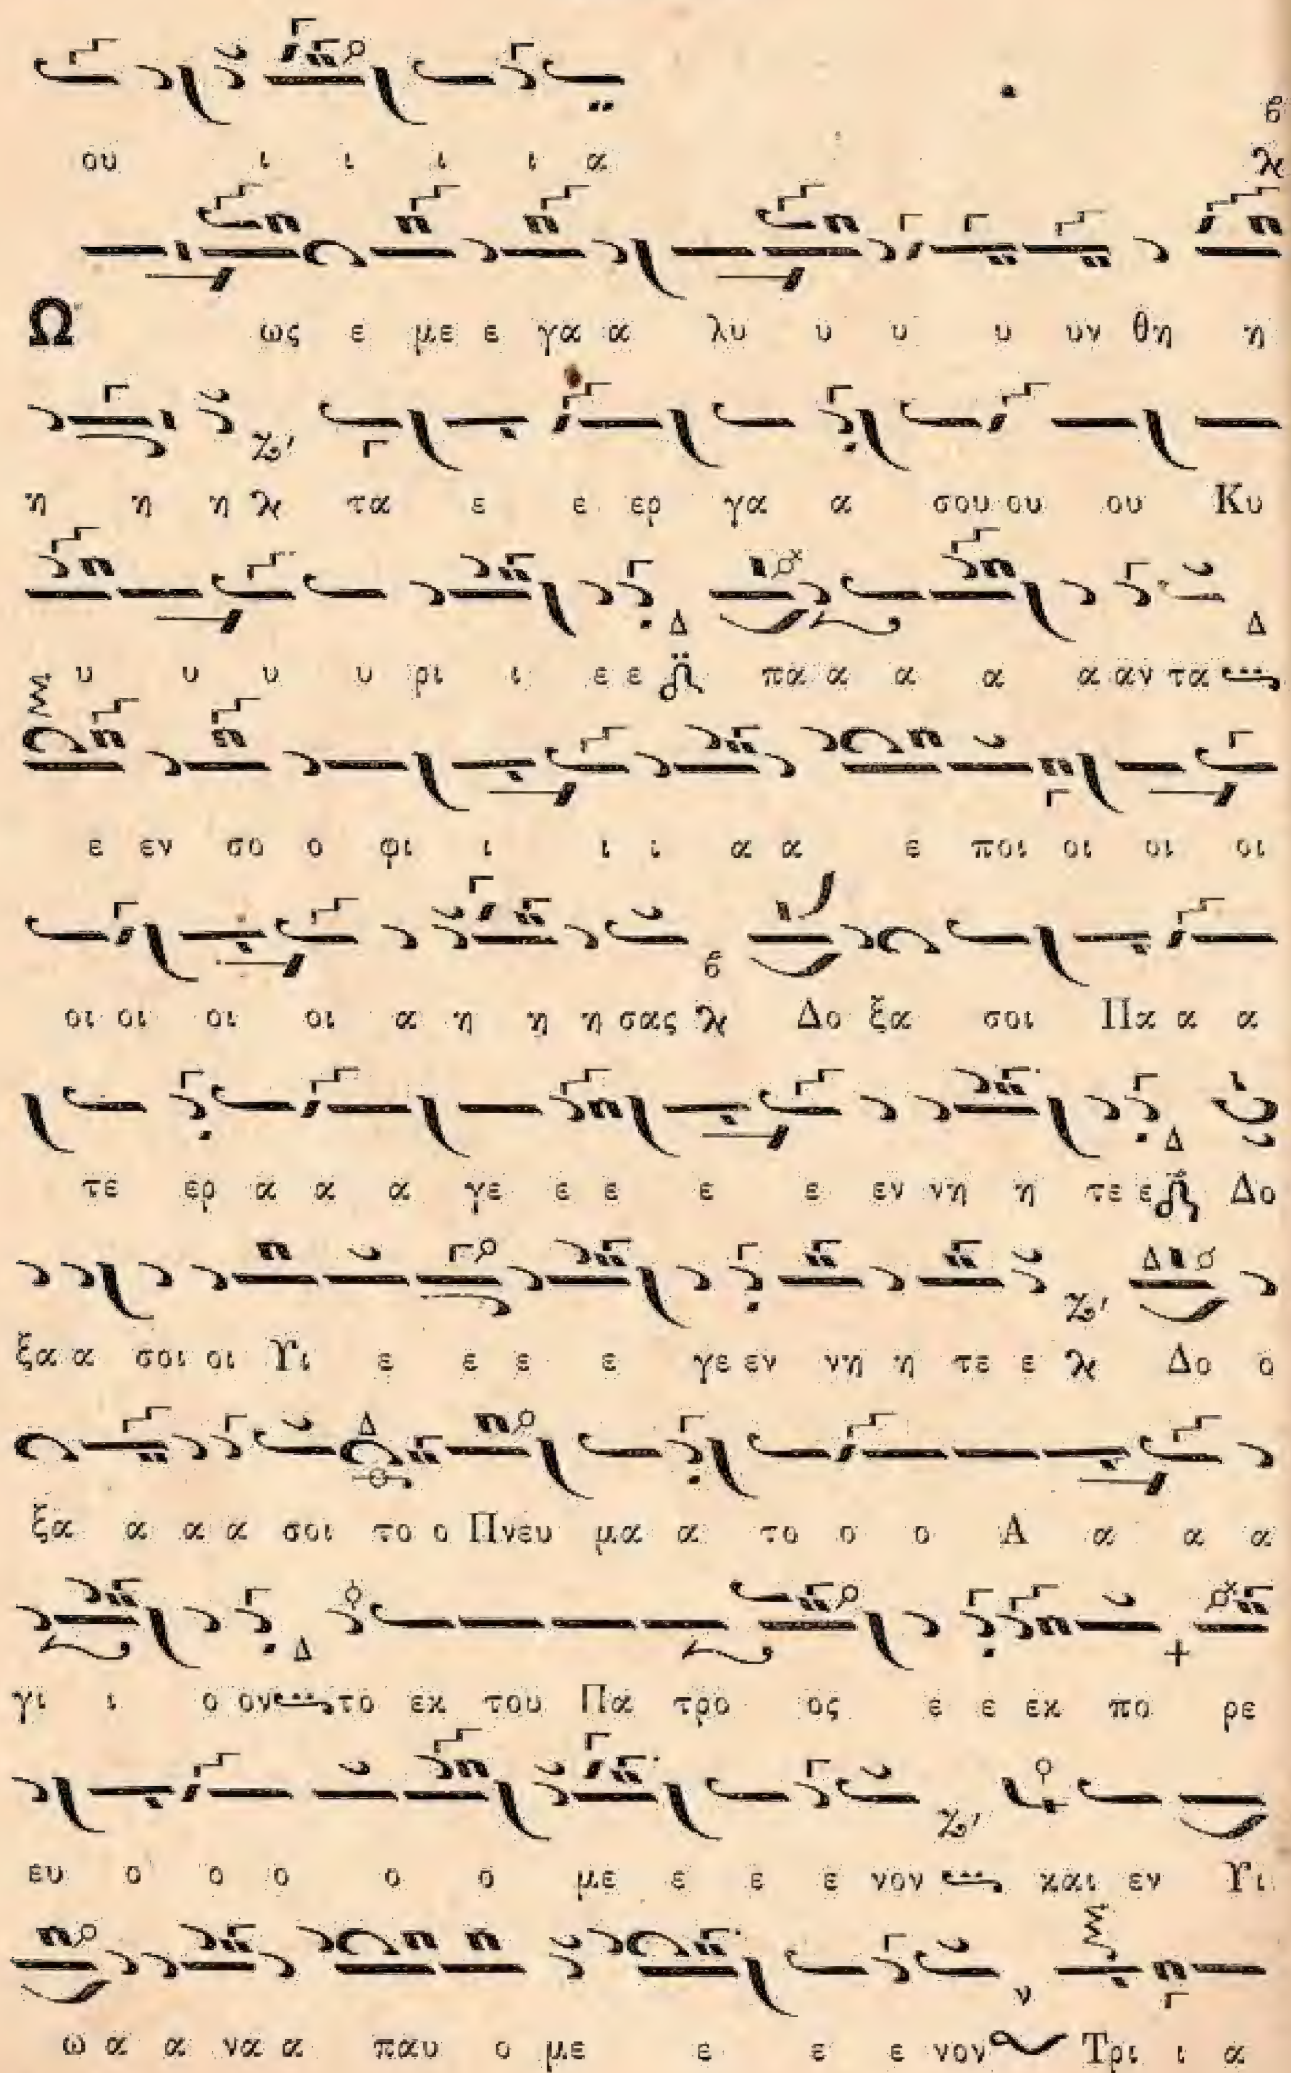 ου ι ι ι ι α
Ω ως ε με ε γα α λυ υ υ υ υν θη η
η η η τα ε ε ερ γα α σου ου ου Κυ
υ υ υ υ ρι ι ε ε πα α α α α αν τα
ε εν σο ο φι ι ι ι α α ε ποι οι οι οι
οι οι οι οι α η η η σας Δο ξα σοι Πα α α
τε ερ α α α γε ε ε ε ε εν νη η τε ε Δο
ξα α σοι οι Υι ε ε ε ε γε εν νη η τε ε Δο ο
ξα α α α σοι το ο Πνευ μα α το ο ο Α α α α
γι ι ο ον το εκ του Πα τρο ος ε ε εκ πο ρε
ευ ο ο ο ο ο με ε ε ε νον και εν Υι
ω α α να α παυ ο με ε ε ε νον Τρι ι α